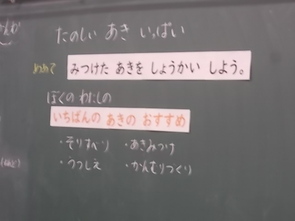 たのしい あき いっぱい
めあて みつけた あきを しょうかい しよう。
ぼくの わたしの
いちばんの あきの おすすめ
・そりすべり ・あきみつけ
・うつしえ ・かんむりつくり